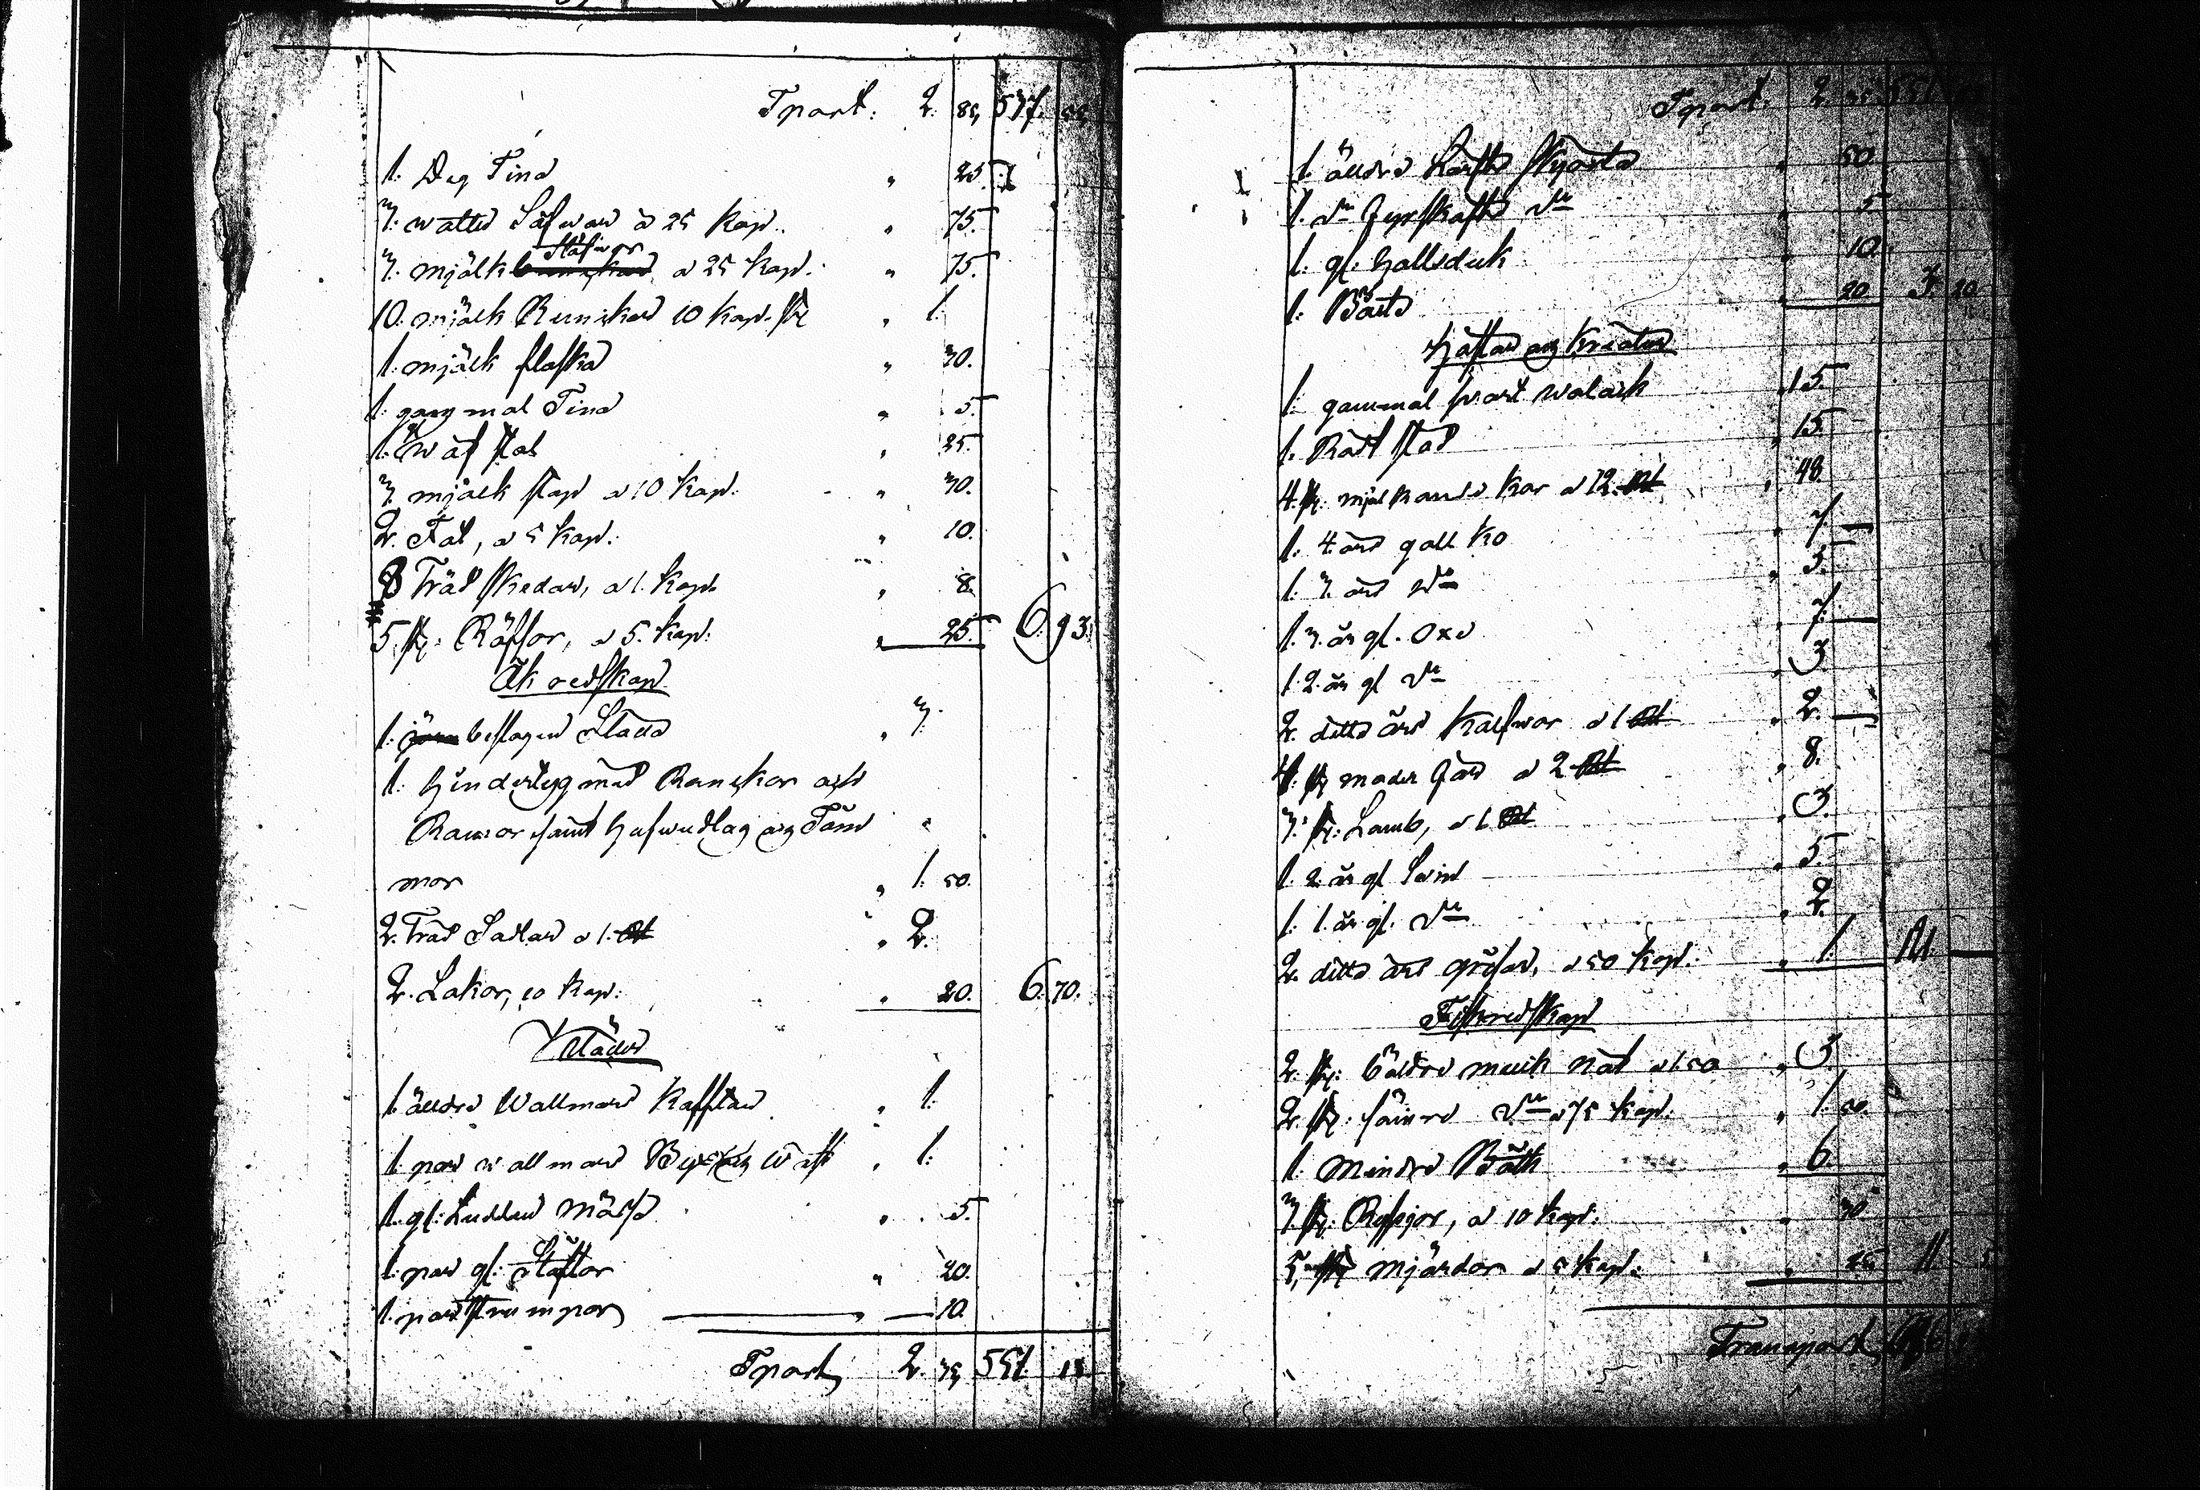 Tport: 2. 85, 537. 55,
1. Deg Tina " 25.
3. watten Såfwar à 25 kop. " 75.
3. mjölk Ståfwor a 25 kop. " 75.
10. mjölk Bunckar 10 kop. st " 1.
1. mjölk flaska " 30.
1. gammal Tina " 5.
1. Wäf stol " 25.
3. mjölk stop a 10 kop. " 30.
2. Fat, a 5 kop. " 10.
8 Träd skedar, a 1. kop. " 8.
5. st: Räfsor, a 5. kop: " 25. 6. 93.
Åk redskap
1. beslagen Släda " 3.
1. hindertyg med Ranckor och
Ramor samt hufwudlag och Töm "
mor " 1. 50.
2. Träd Sadlar a 1. Rbl " 2.
2. Lokor, 10 kop: " 20. 6. 70.
Kläder
1. äldre Wallmars Kafftan " 1.
1. par wallmars Byxor och Wäst " 1:
1. gl: Ludden Mössa " 5.
1. par gl: Stöflor " 20.
1. par strumpor " 10.
Tport, 2. 35, 551. 18.
Tport. 2. 35 551.
1. äldre Lärfts skjorta " 50
1. do fyrskafts do " 5
1. gl: halsduk " 10.
1. Bälte " 20 3. 20
Hästar och Kreatur
1. gammal svart walack " 15.
1. Rödt sto " 15.
4. st. mjölkande kor a 12. Rbl " 48.
1. 4. års gall ko " 7.
1. 3. års do " 5.
1. 3. år gl. Oxe " 7.
1. 2. år gl do " 3.
2. ditto års kalfwar a 1 Rbl " 2.
4. st moder får a 2 Rbl " 8.
3. st: Lamb, a 1 Rbl " 3.
1. 2. år gl Swin " 5.
1. 1. år gl. do " 2.
2. ditto års grisar, a 50 kop: " 1. 121.
Fiskredskap
2. st: äldre muik nät a 1.50 " 3.
2. st: sämre do a 75 kop: " 1. 50.
1. mindre Båth " 6.
3. st: Ryssjor, a 10 kop: " 30
5, st mjärdor a 5 kop: " 25 11. 5
Transport, 686